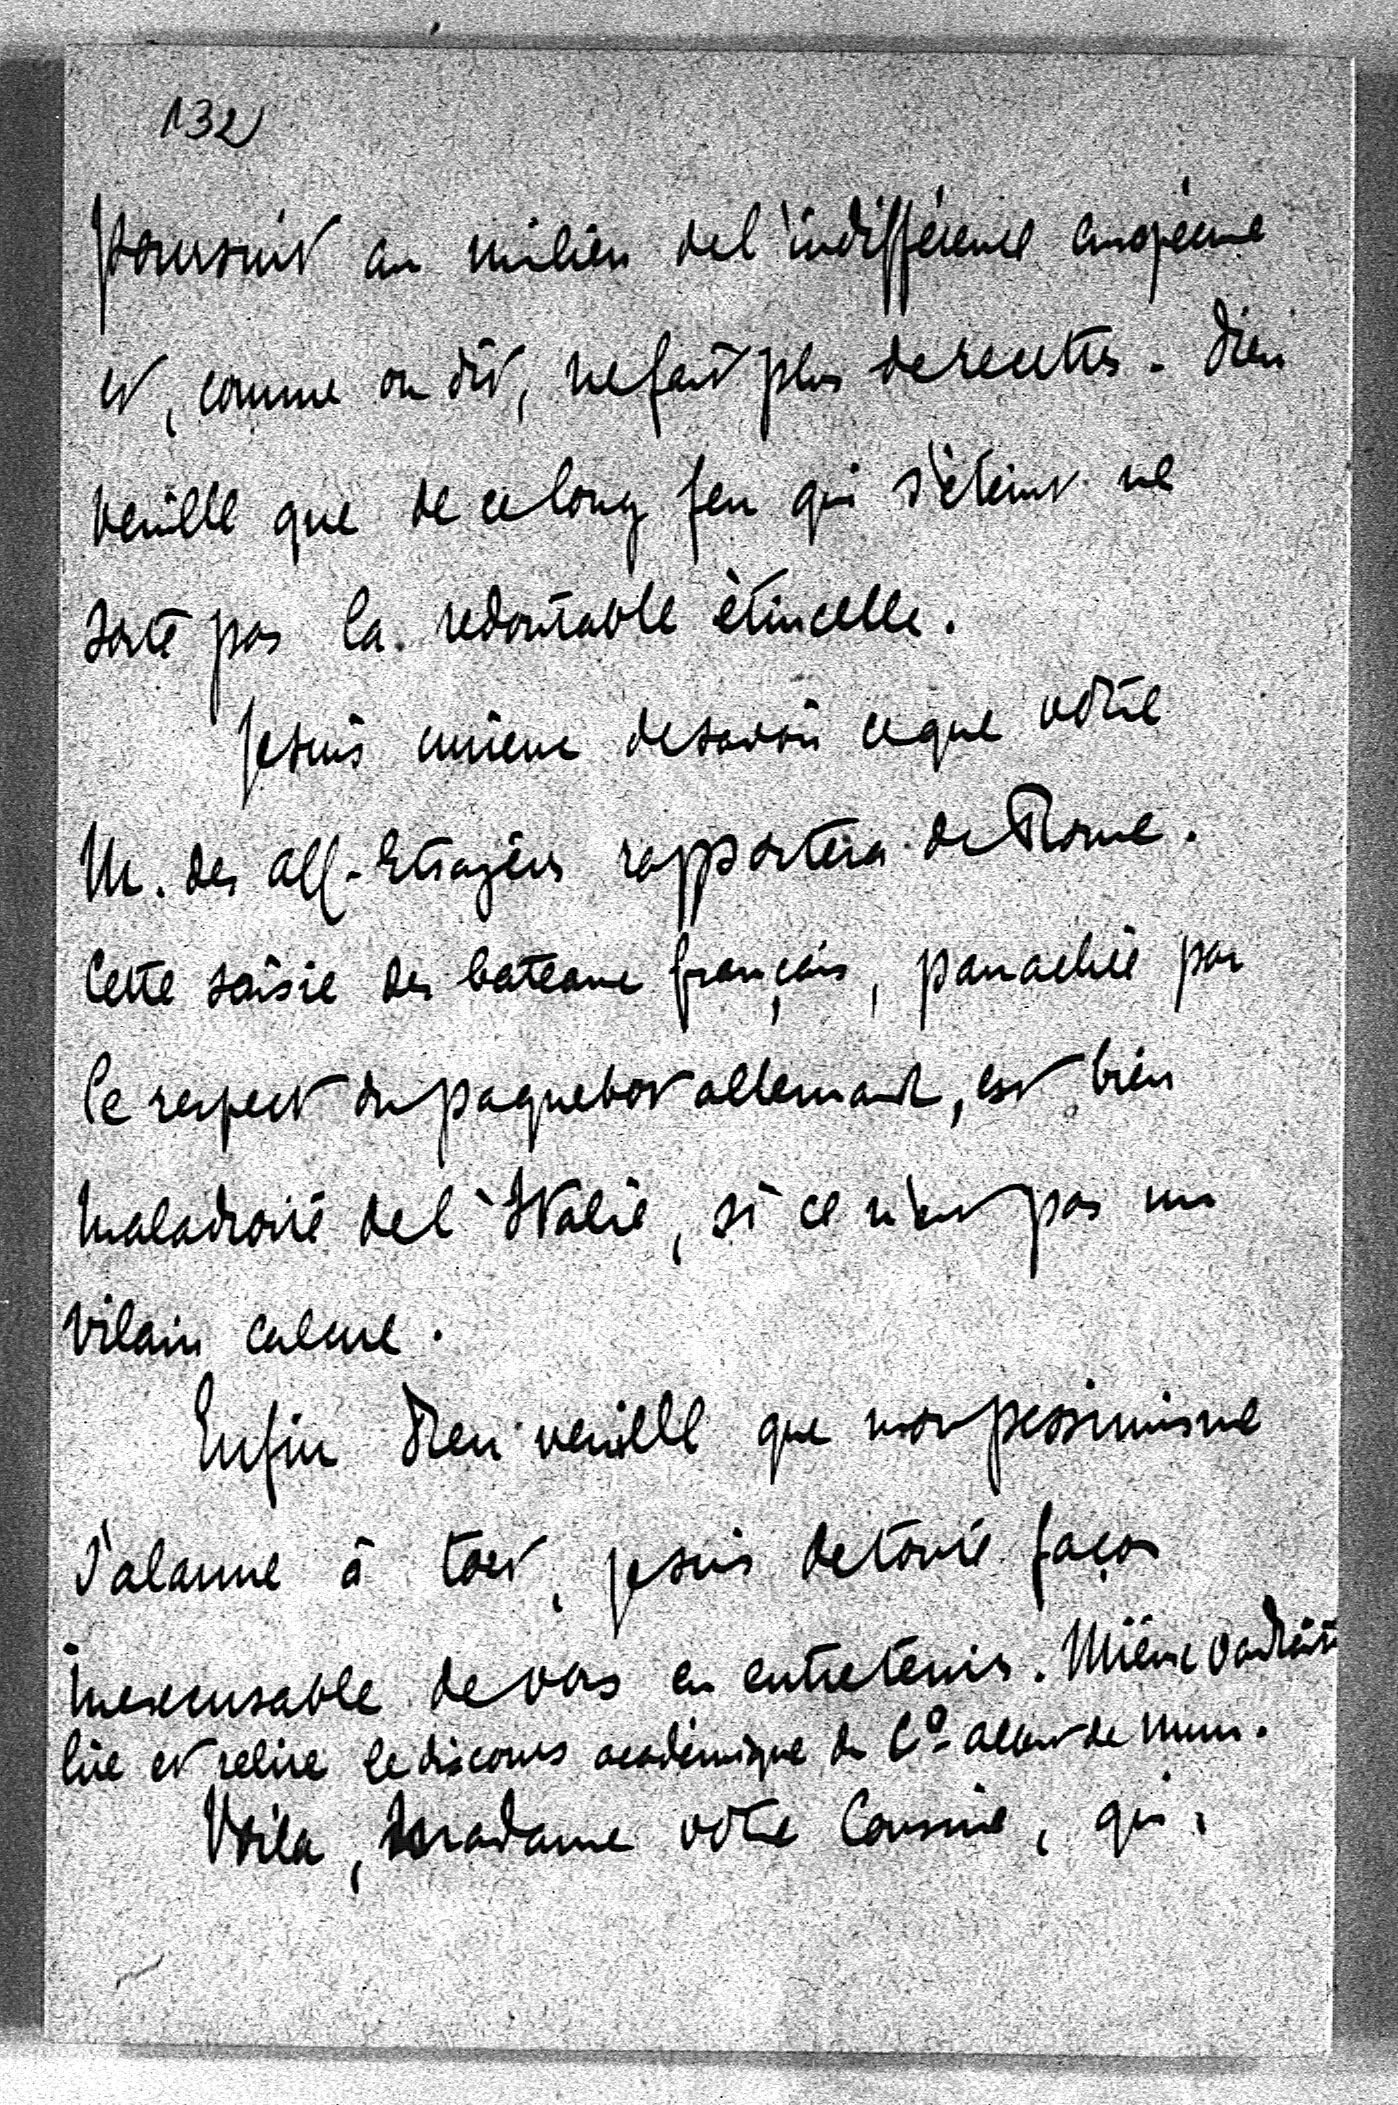 132
poursuit au milieu de l'indifférence européenne
et, comme on dit, ne fait plus de recettes. Dieu
veuille que de ce long feu qui s'éteint ne
sorte pas la redoutable étincelle.
Je suis curieux de savoir ce que votre
M. des Aff. Etragères rapportera de Rome.
Cette saisie des bateaux français, panachée par
le respect du paquebot allemand, est bien
maladroite de l'Italie, si ce n'est pas un
vilain calcul.
Enfin Dieu veuille que mon pessimisme
s'alarme à tort, je suis de toute façon
inexcusable de vous en entretenir. Mieux vaudrait
lire et relire le discours académique du Cte Albert de Mun.
Voilà, Madame votre Cousine, qui,